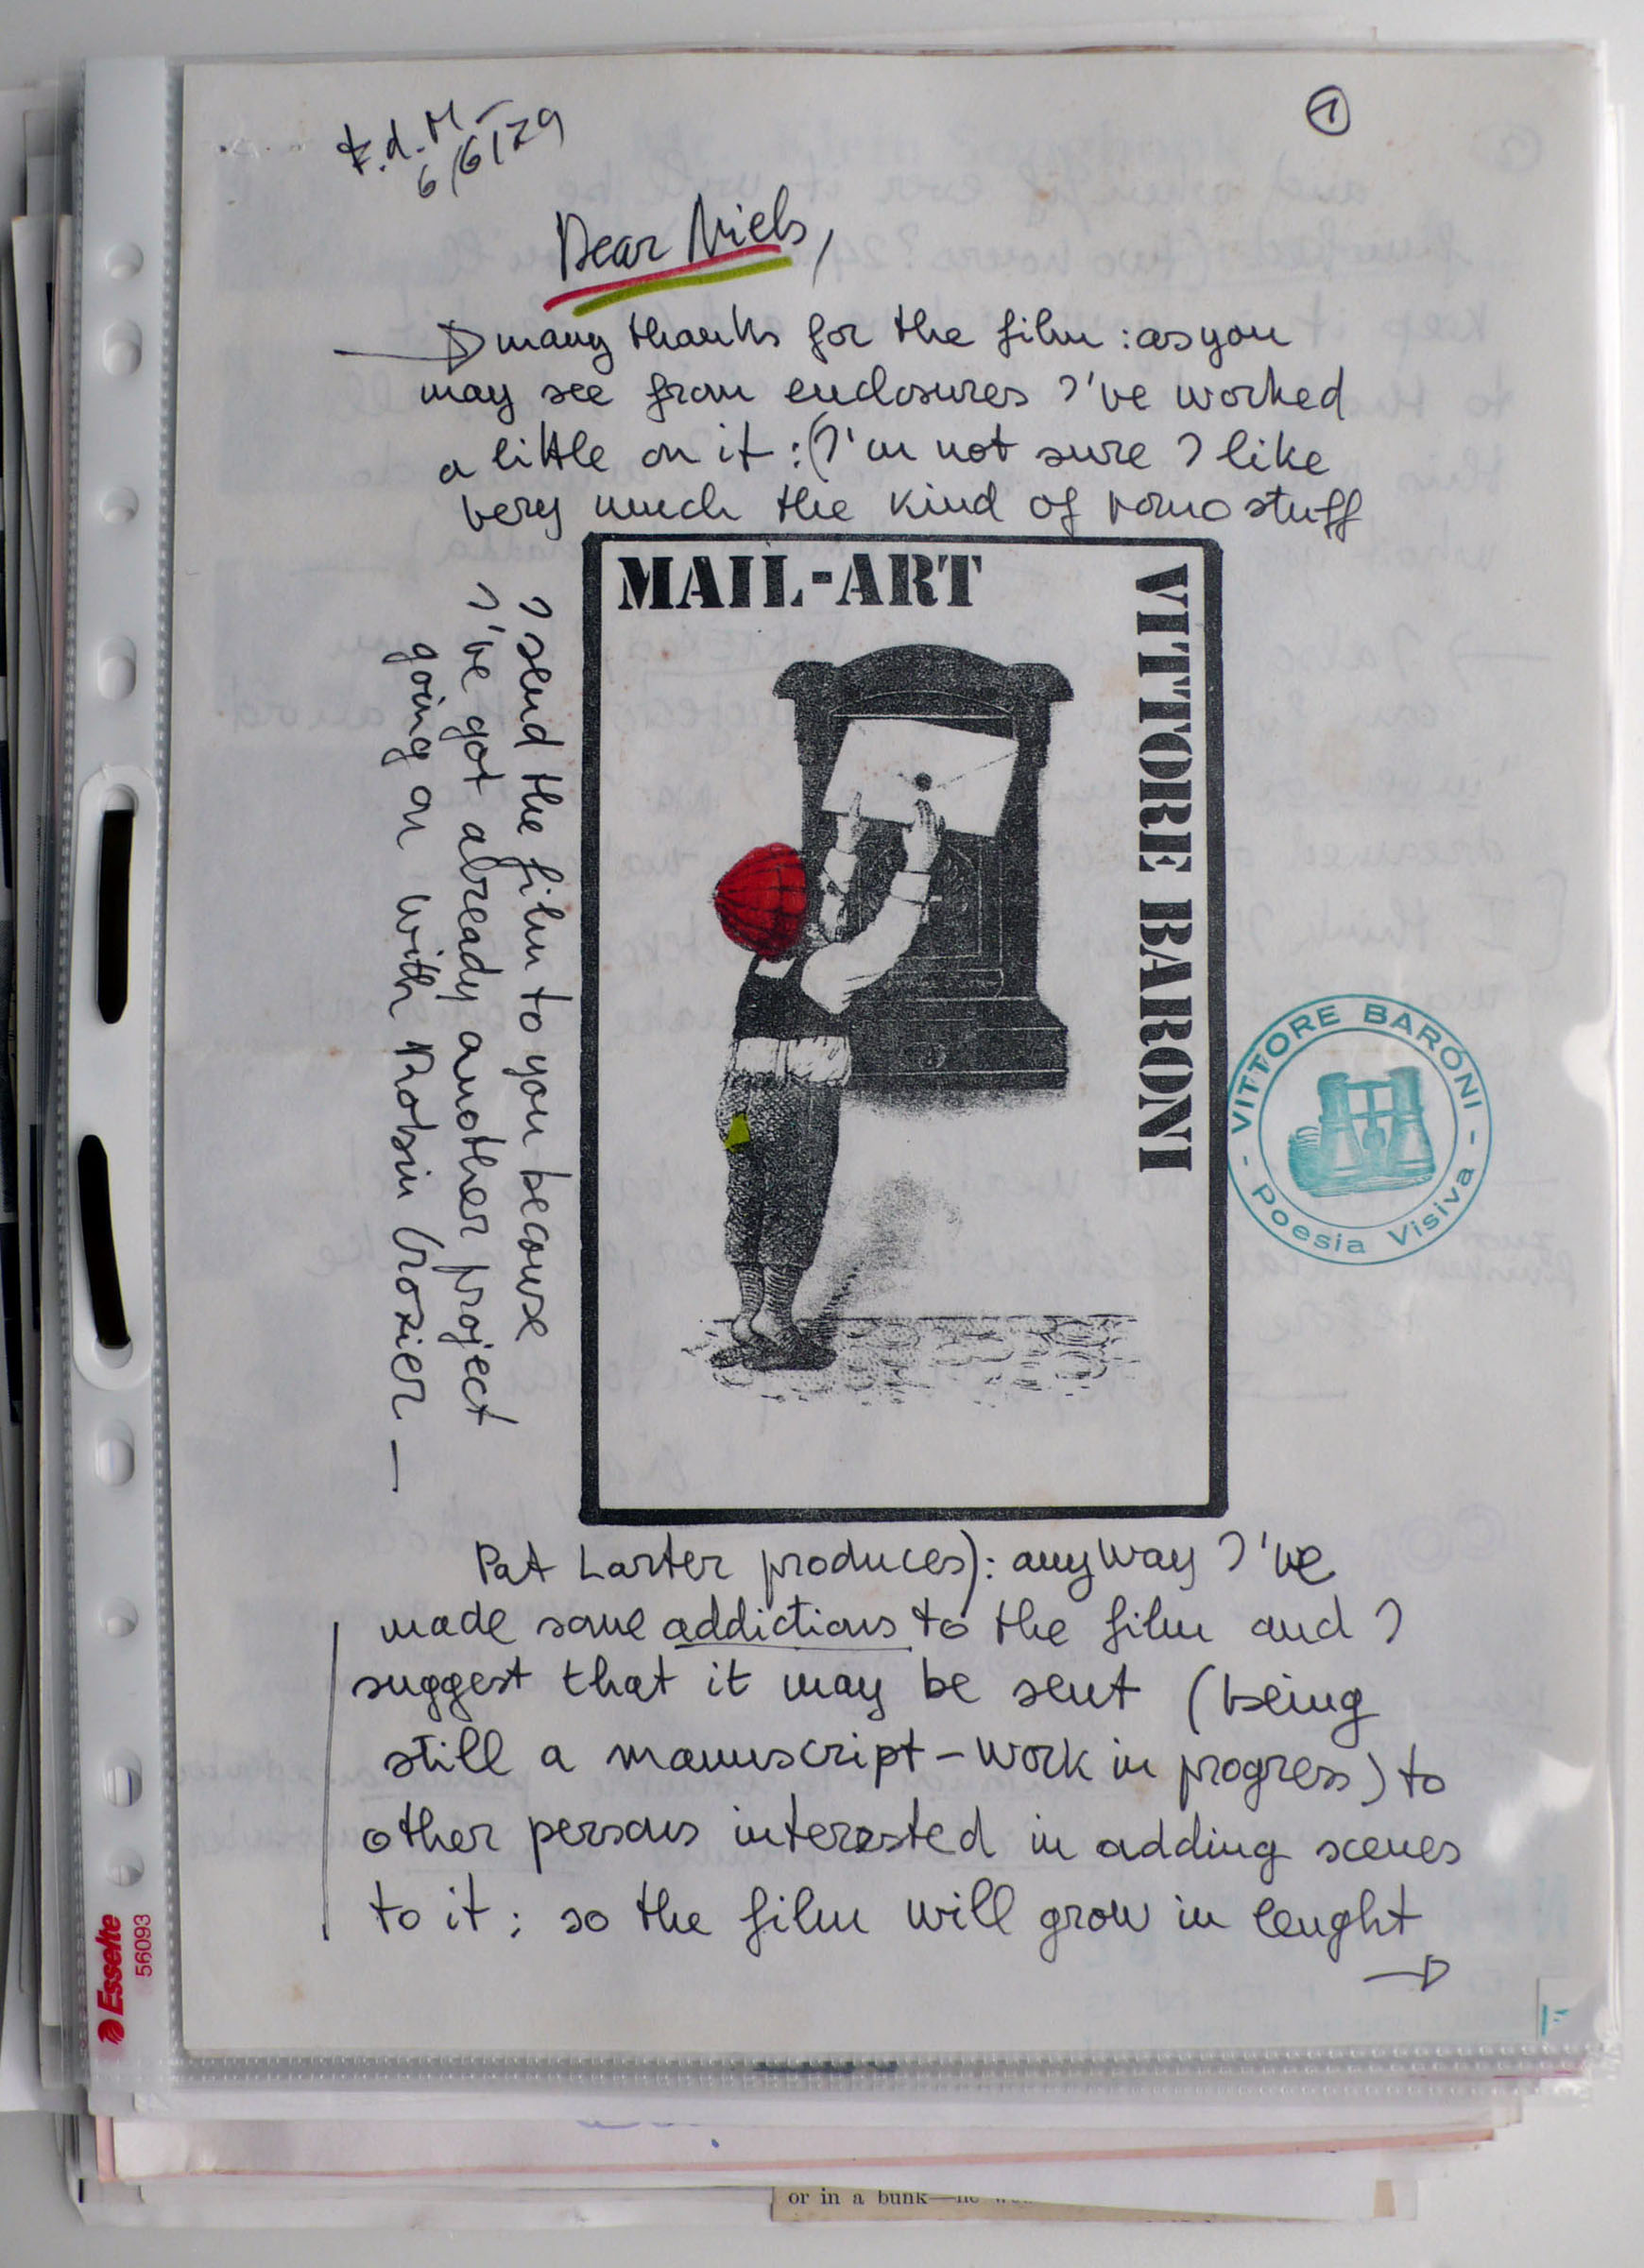 ①
F.d.M-
6/6/79
Dear Niels,
many thanks for the film: as you
may see from enclosures I've worked
a little on it: (I'm not sure I like
very much the kind of porno stuff
MAIL-ART
VITTORE BARONI
I send the film to you because
I've got already another project
going on with Robin Crozier —
- VITTORE BARONI -
Poesia Visiva
Pat Larter produces): anyway I've
made some addictions to the film and I
suggest that it may be sent (being
still a manuscript-work in progress) to
other persons interested in adding scenes
to it: so the film will grow in lenght
Esselte
56093
or in a bunk—he